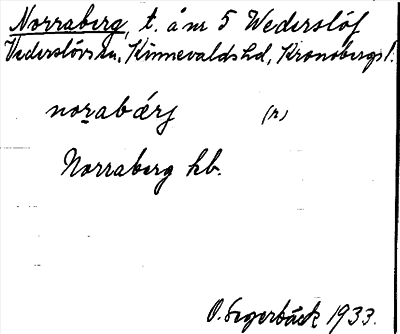 Norraberg, t. å nr 5 Wederslöf
Vederslövs sn, Kinnevalds hd, Kronobergs l.
norabärj (r)
Norraberg hb.
O. Segerbäck 1933.